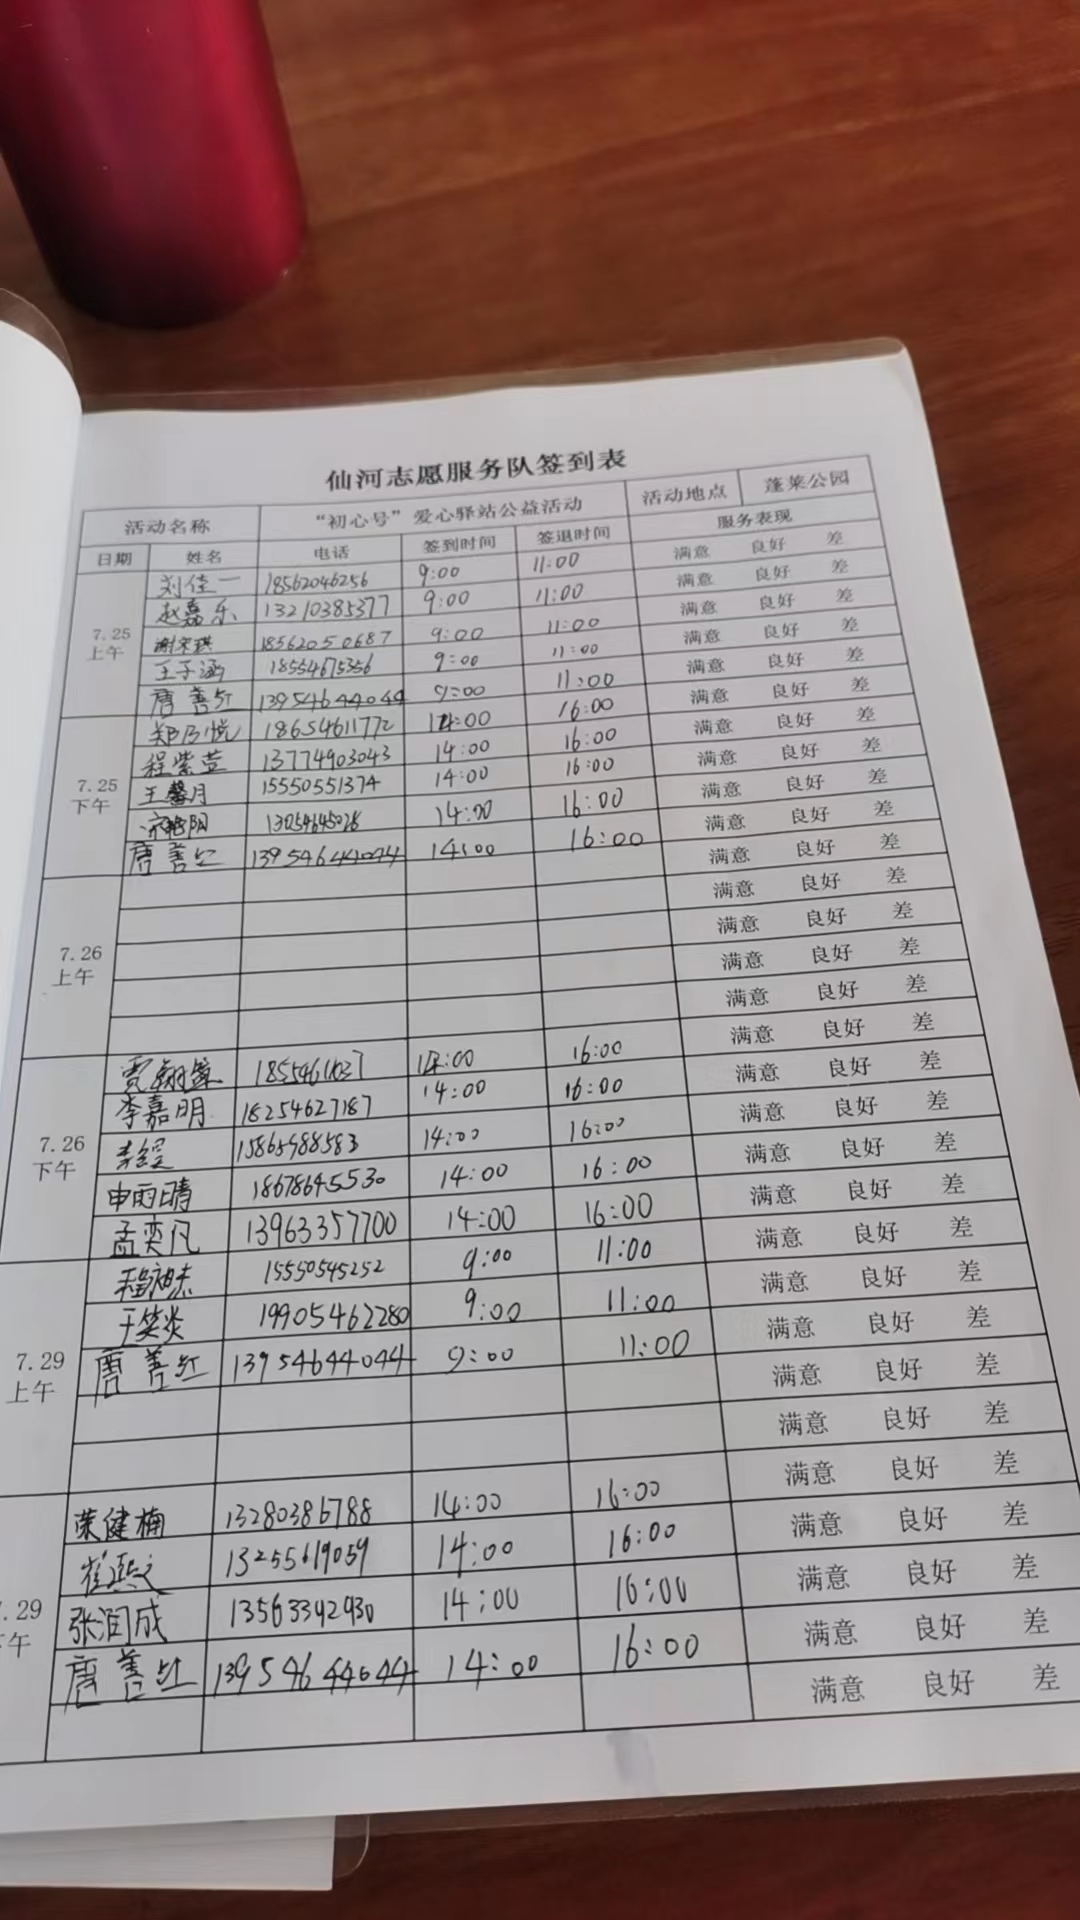 仙河志愿服务队签到表
活动名称 “初心号”爱心驿站公益活动 活动地点 蓬莱公园
日期 姓名 电话 签到时间 签退时间 服务表现
7.25 上午
刘佳一 18562046256 9:00 11:00 满意 良好 差
赵嘉乐 13210385377 9:00 11:00 满意 良好 差
18562050687 9:00 11:00 满意 良好 差
王子涵 18554675356 9:00 11:00 满意 良好 差
唐善红 13954644044 9:00 11:00 满意 良好 差
7.25 下午
郑乃悦 18654611772 14:00 16:00 满意 良好 差
程紫萱 13774903043 14:00 16:00 满意 良好 差
王馨月 15550551374 14:00 16:00 满意 良好 差
13054645026 14:00 16:00 满意 良好 差
唐善红 13954644044 14:00 16:00 满意 良好 差
7.26 上午
满意 良好 差
满意 良好 差
满意 良好 差
满意 良好 差
满意 良好 差
7.26 下午
14:00 16:00 满意 良好 差
李嘉明 18254627187 14:00 16:00 满意 良好 差
15865988583 14:00 16:00 满意 良好 差
申雨晴 18678645530 14:00 16:00 满意 良好 差
孟奕凡 13963357700 14:00 16:00 满意 良好 差
7.29 上午
15550545252 9:00 11:00 满意 良好 差
王笑炎 19905462280 9:00 11:00 满意 良好 差
唐善红 13954644044 9:00 11:00 满意 良好 差
满意 良好 差
满意 良好 差
.29 午
荣健楠 13280386788 14:00 16:00 满意 良好 差
崔熙文 13255619059 14:00 16:00 满意 良好 差
张润成 13563342930 14:00 16:00 满意 良好 差
唐善红 13954644044 14:00 16:00 满意 良好 差
满意 良好 差